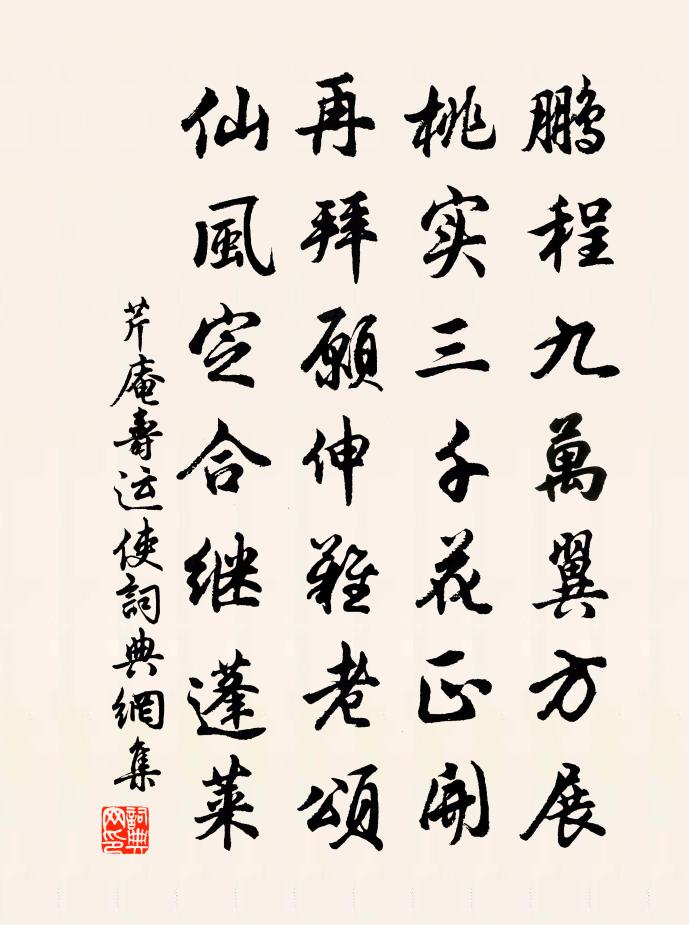 鹏程九萬翼方展
桃实三千花正開
再拜願伸難老頌
仙風定合継蓬萊
芹庵壽运使詞典網集
詞典网印